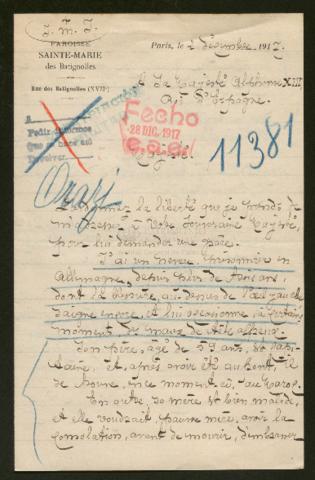 J. M. J.
PAROISSE
SAINTE-MARIE
des Batignolles
Rue des Batignolles (XVIIe)
Paris, le 2 décembre 1917
A Sa Majesté Alphonse XIII
Roi d'Espagne.
A
Pedir
que se hace
Devolver
Fecho
28 DIC. 1917
11381
Sire
Pardonnez la liberté que je prends de
m'adresser à Votre Souveraine Majesté,
pour lui demander une grâce.
J'ai un neveu prisonnier en
Allemagne, depuis plus de trois ans,
dont la blessure, au dessus de l'œil gauche
saigne encore, et lui occasionne, à certains
moments, des maux de tête affreux.
Son père, âgé de 59 ans, est
et, après avoir été au front,
en ce moment au Maroc.
En outre, sa mère est bien malade,
et elle voudrait, pauvre mère, avoir la
consolation, avant de mourir, d'embrasser